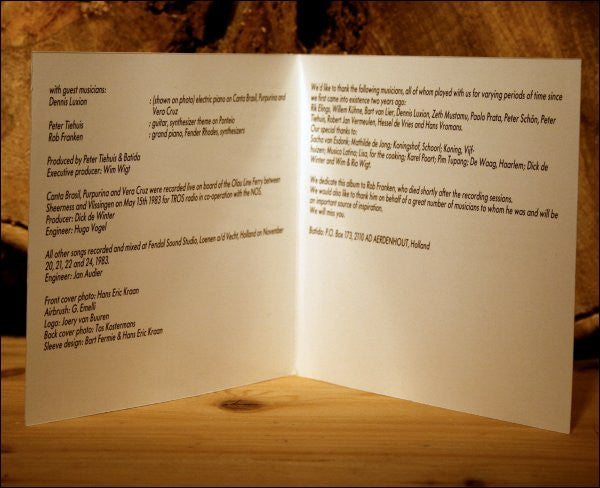 with guest musicians:
Dennis Luxion : (shown on photo) electric piano on Canta Brasil, Purpurina and
Vera Cruz
Peter Tiehuis : guitar, synthesizer theme on Panteia
Rob Franken : grand piano, Fender Rhodes, synthesizers
Produced by Peter Tiehuis & Batida
Executive producer: Wim Wigt
Canta Brasil, Purpurina and Vera Cruz were recorded live on board of the Olau Line Ferry between
Sheerness and Vlissingen on May 15th 1983 for TROS radio in co-operation with the NOS.
Producer: Dick de Winter
Engineer: Hugo Vogel
All other songs recorded and mixed at Fendal Sound Studio, Loenen a/d Vecht, Holland on November
20, 21, 22 and 24, 1983.
Engineer: Jan Audier
Front cover photo: Hans Eric Kraan
Airbrush: G. Emelli
Logo: Joery van Buuren
Back cover photo: Tos Kostermans
Sleeve design: Bart Fermie & Hans Eric Kraan
We'd like to thank the following musicians, all of whom played with us for varying periods of time since
we first came into existence two years ago:
Rik Elings, Willem Kühne, Bart van Lier, Dennis Luxion, Zeth Mustamu, Paolo Prata, Peter Schön, Peter
Tiehuis, Robert Jan Vermeulen, Hessel de Vries and Hans Vromans.
Our special thanks to:
Sacha van Esdonk; Mathilde de Jong; Koningshof, Schoorl; Koning, Vijf-
huizen; Musica Latina; Lisa, for the cooking; Karel Poort; Pim Tupang; De Waag, Haarlem; Dick de
Winter and Wim & Ria Wigt.
We dedicate this album to Rob Franken, who died shortly after the recording sessions.
We would also like to thank him on behalf of a great number of musicians to whom he was and will be
an important source of inspiration.
We will miss you.
Batida: P.O. Box 173, 2110 AD AERDENHOUT, Holland